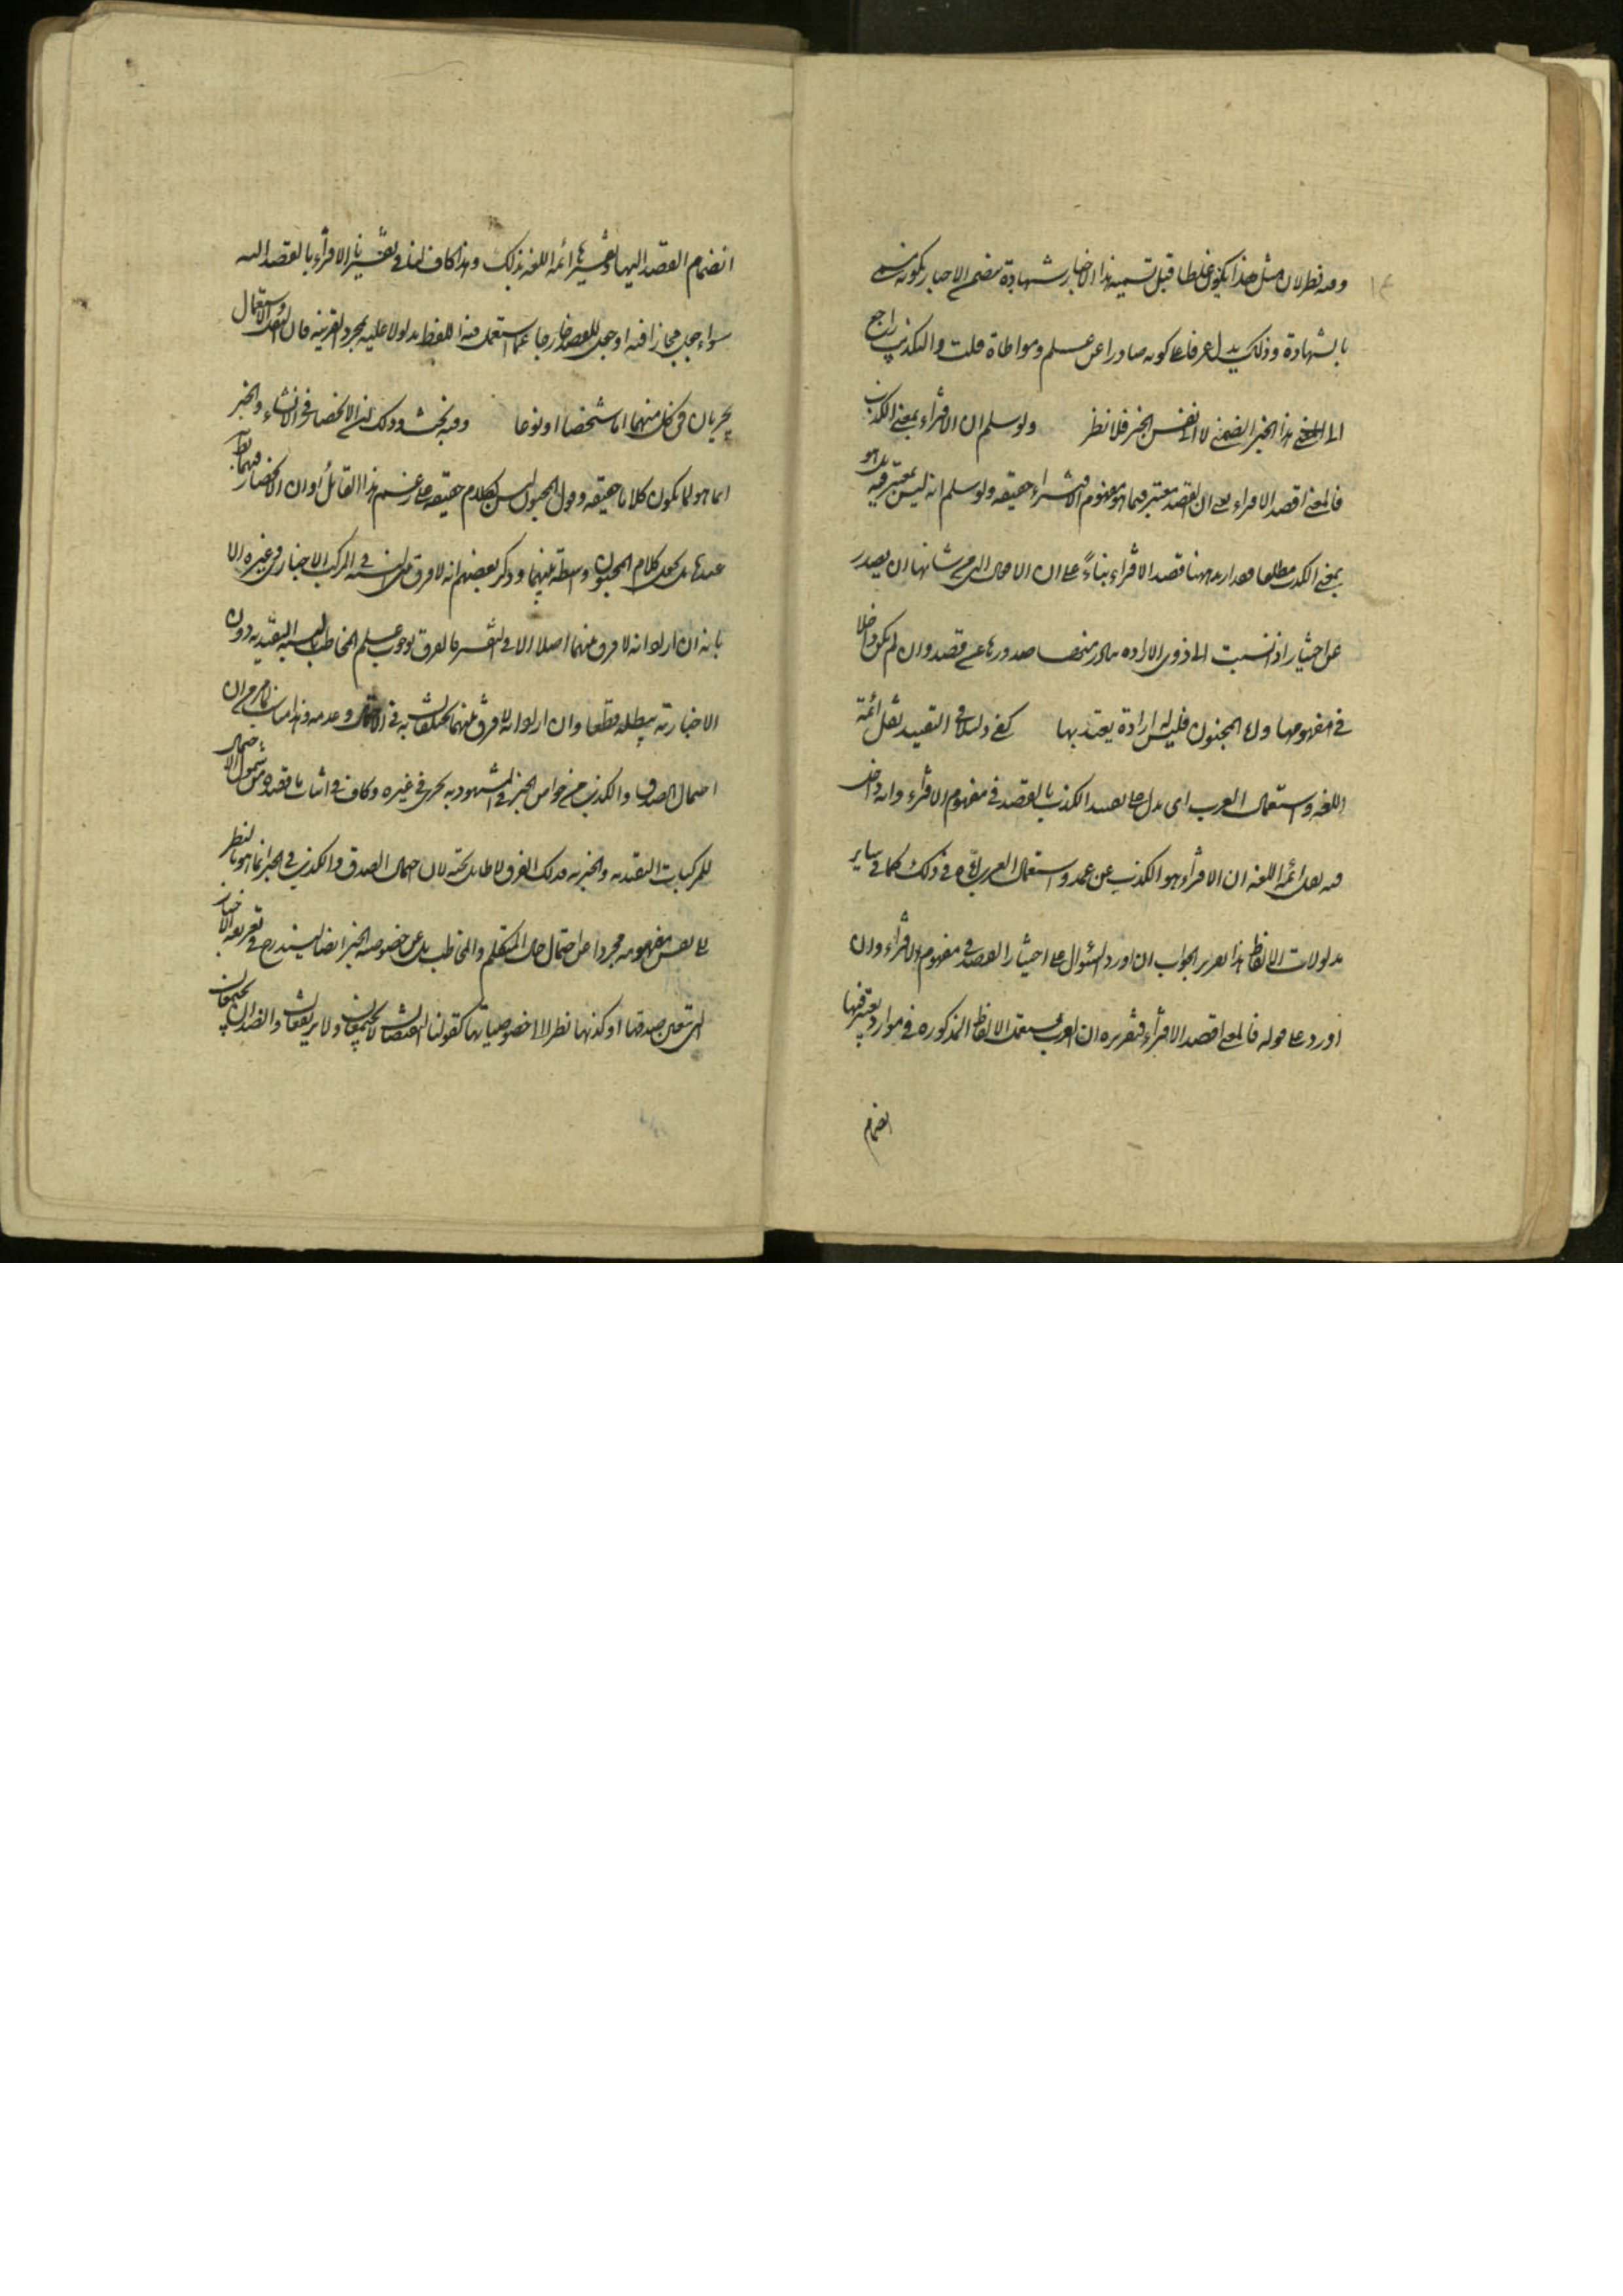 وفيه نظر لان مثل هذا يكون غلطا قبل تسمية هذا الاخبار شهادة متضمن الاخبار بكونه مسمى
بالشهادة وذلك يدل عرفا على كونه صادرا عن علم ومواطاة قلت والتكذيب راجع
الى المعنى هذا الخبر الضمني لا الى نفس الخبر فلا نظر ولو سلم ان الافتراء بمعنى الكذب
فالمعنى اقصد الافتراء يعنى ان القصد معتبر فيما هو مفهوم الافتراء حقيقة ولو سلم انه ليس بمعتبر فيه بل هو
بمعنى الكذب مطلقا فقد اريد ههنا قصد الافتراء بناءً على ان الافعال التى من شانها ان يصدر
عن اختيار اذا نسبت الى ذوى الارادة يتبادر منها صدورها عن قصد وان لم يكن داخلا
فى مفهومها واما المجنون فليس له ارادة يعتد بها كفى دليلا فى التقييد نقل ائمة
اللغة واستعمال العرب اى يدل على تقييد الكذب بالقصد فى مفهوم الافتراء وانه داخل
فيه نقل ائمة اللغة ان الافتراء هو الكذب عن عمد واستعمال العرب اياه فى ذلك كما فى ساير
مدلولات الالفاظ هذا تقرير الجواب ان اورد السئوال على اختيار القصد فى مفهوم الافتراء وان
اورد على قوله فالمعنى اقصد الافتراء فتقريره ان العرب يستعمل الالفاظ المذكورة فى موارد يعتبر فيها
انضمام
انضمام القصد اليها وتفسيرها ائمة اللغة بذلك وهذا كاف لنا فى تفسيرنا الافتراء بالقصد اليه
سواء جعل مجازا فيه او جعل القصد خارجا عما استعمل فيه اللفظ مدلولا عليه بمجرد القرينة فان النقل والاستعمال
يجريان فى كل منهما اما شخصا او نوعا وفيه بحث وذلك لان الانحصار فى الانشاء والخبر
انما هو لما يكون كلاما حقيقة وقول المجنون ليس بكلام حقيقة على زعم هذا القائل او ان الانحصار فيهما
عندنا بل يجعل كلام المجنون واسطة بينهما وذكر بعضهم انه لا فرق بين النسبة فى المركب الاخبارى وغيره الا
بانه ان اراد انه لا فرق بينهما اصلا الا فى التعبير فالفرق بوجوب علم المخاطب بالنسبة التقييدية دون
الاخبارية يبطله قطعا وان اراد انه لا فرق بينهما يختلفان به فى الاحتمال وعدمه
احتمال الصدق والكذب من خواص الخبر فى المشهور به يجرى فى غيره وكاف فى اثبات ما قصده من شمول الاحتمال
للمركبات التقييدية والخبرية فذلك الفرق لا طائل تحته لان احتمال الصدق والكذب فى الخبر انما هو بالنظر
الى نفس مفهومه مجردا عن احتمال حال المتكلم والمخاطب بل عن خصوصية الخبر ايضا ليندرج فى تعريفه الاخبار
التى تعين صدقها او كذبها نظرا الى خصوصياتها كقولنا النقيضان لا يجتمعان ولا يرتفعان والضدان يجتمعان